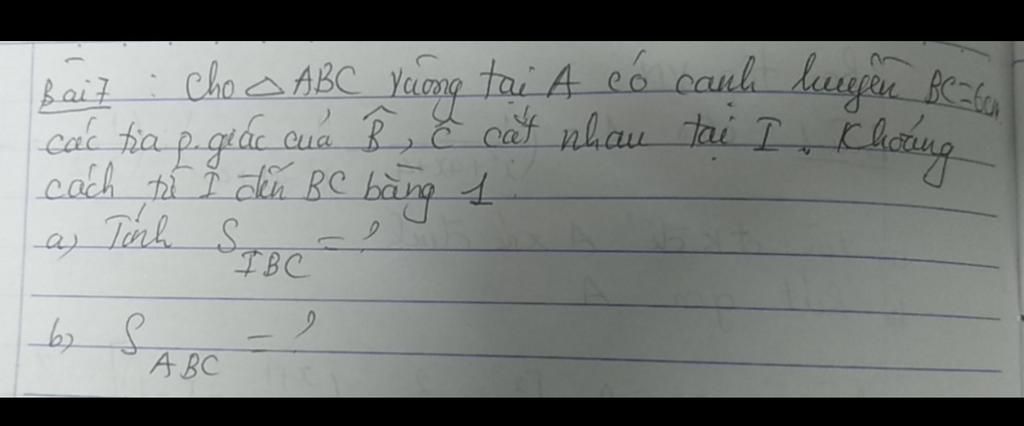 Bài 7 : Cho △ABC vuông tại A có cạnh huyền BC=6cm
các tia p.giác của B̂, Ĉ cắt nhau tại I. Khoảng
cách từ I đến BC bằng 1
a) Tính S_IBC = ?
b) S_ABC = ?